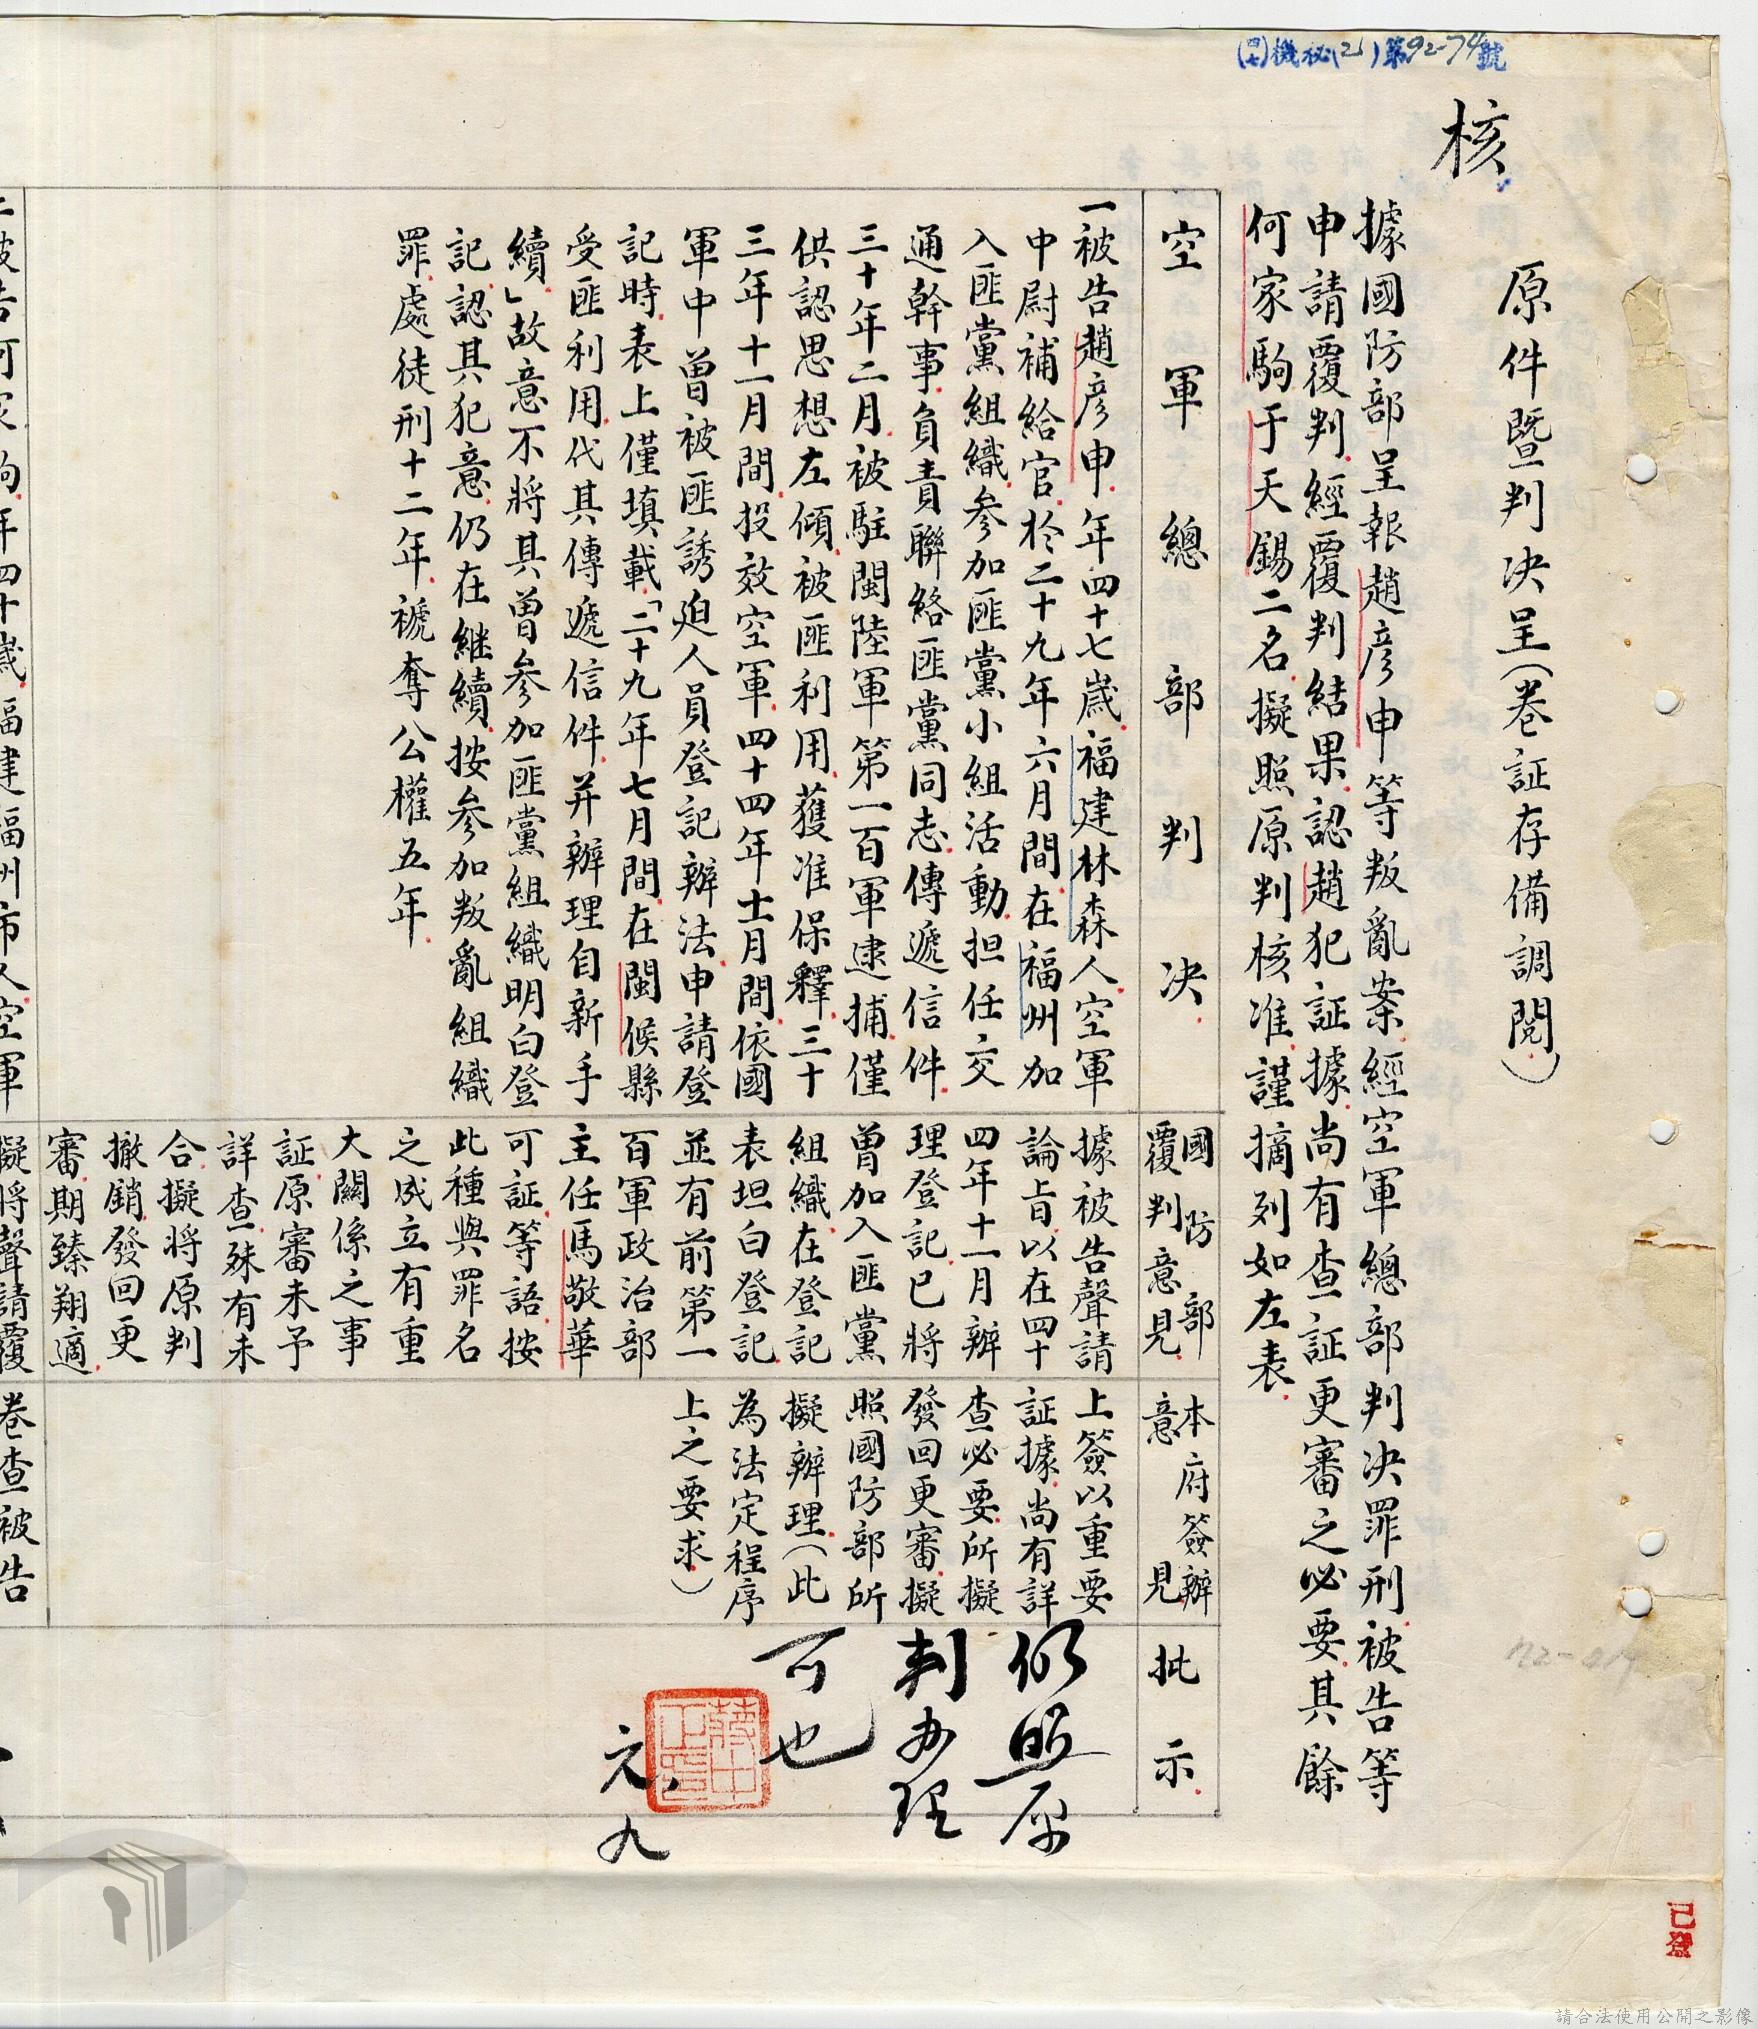 (四七)機秘(21)第92-74號
核
原件暨判决呈(卷証存備調閱)
據國防部呈報趙彥申等叛亂案經空軍總部判决罪刑被告等
申請覆判經覆判結果認趙犯証據尚有查証更審之必要其餘
何家駒于天錫二名擬照原判核准謹摘列如左表
空軍總部判决
一被告趙彥申年四十七歲福建林森人空軍
中尉補給官於二十九年六月間在福州加
入匪黨組織參加匪黨小組活動担任交
通幹事負責聯絡匪黨同志傳遞信件
三十年二月被駐閩陸軍第一百軍逮捕僅
供認思想左傾被匪利用獲准保釋三十
三年十一月間投效空軍四十四年十一月間依國
軍中曾被匪誘迫人員登記辦法申請登
記時表上僅填載「二十九年七月間在閩侯縣
受匪利用代其傳遞信件并辦理自新手
續」故意不將其曾參加匪黨組織明白登
記認其犯意仍在継續按參加叛亂組織
罪處徒刑十二年褫奪公權五年
二被告何家駒年四十歲福建福州市人空軍
國防部
覆判意見
據被告聲請
論旨以在四十
四年十一月辦
理登記已將
曾加入匪黨
組織在登記
表坦白登記
並有前第一
百軍政治部
主任馬敬華
可証等語按
此種與罪名
之成立有重
大關係之事
証原審未予
詳查殊有未
合擬將原判
撤銷發回更
審期臻翔適
擬將聲請覆
本府簽辦
意見
上簽以重要
証據尚有詳
查必要所擬
發回更審擬
照國防部所
擬辦理(此
為法定程序
上之要求)
卷查被告
批示
仍照原
判办理
可也
蔣中正印
元、九
已登
請合法使用公開之影像